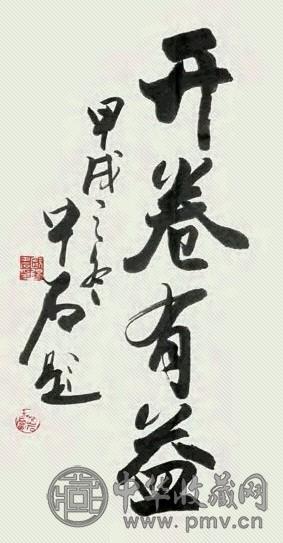 开卷有益
甲戌之冬
中石题
中华收藏网
www.pmv.cn